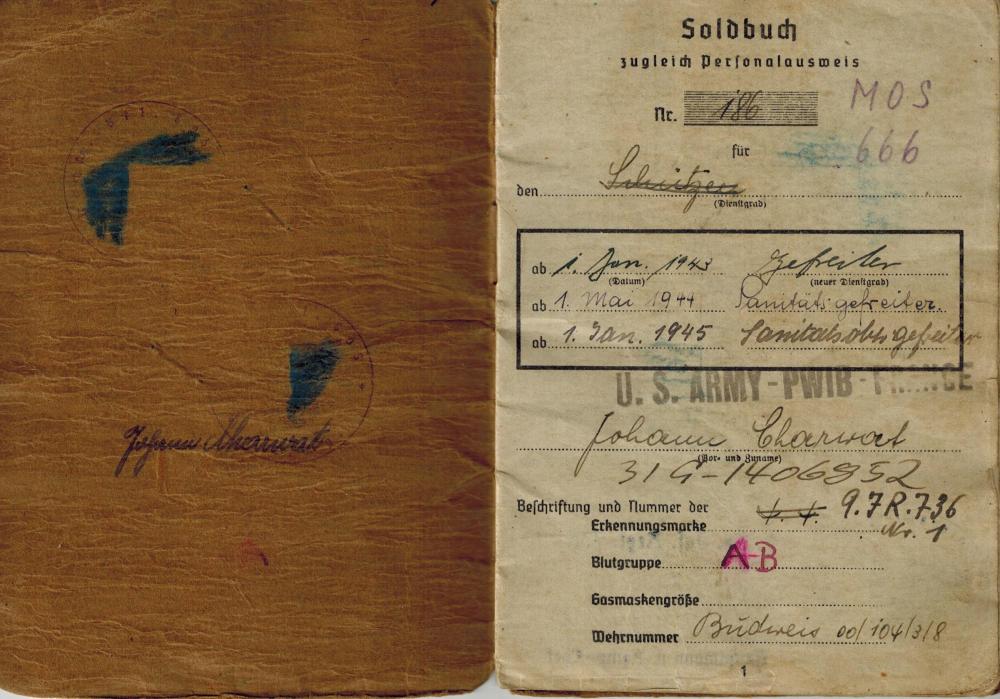 Johann Charwat
Soldbuch
zugleich Personalausweis
Nr. 186
MOS
666
für
den Schützen
(Dienstgrad)
ab 1. Jan. 1943 Gefreiter
(Datum) (neuer Dienstgrad)
ab 1. Mai 1944 Sanitätsgefreiter.
ab 1. Jan. 1945 Sanitätsobergefreiter
U. S. ARMY-PWIB-FRANCE
Johann Charwat
(Vor- und Zuname)
31G-1406952
Beschriftung und Nummer der
Erkennungsmarke 9.JR.736
Nr. 1
Blutgruppe AB
Gasmaskengröße
Wehrnummer Budweis 00/104/3/8
1